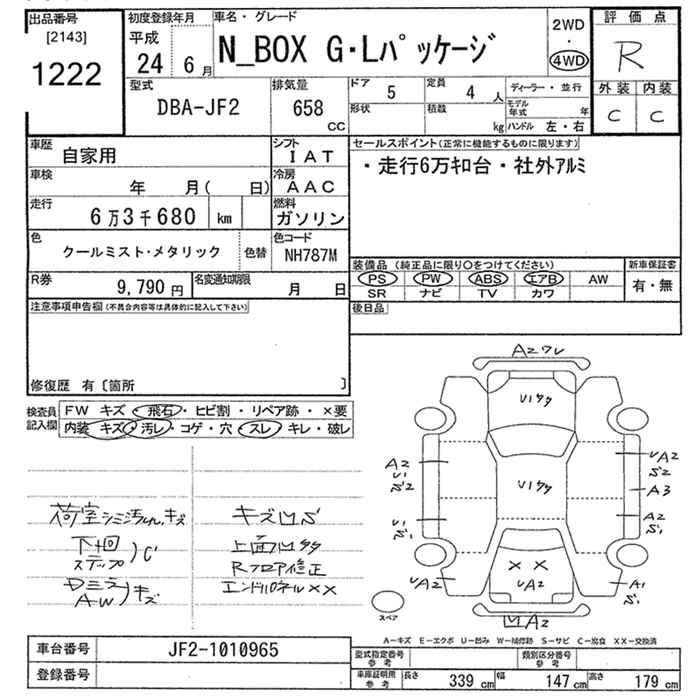 出品番号 初度登録年月 車名・グレード 2WD 評価点
[2143] 平成 ・
1222 24 6月 N_BOX G・Lパッケージ 4WD R
型式 排気量 ドア 5 定員 4人 ディーラー・並行 外装 内装
DBA-JF2 658 形状 積載 モデル年式 年 C C
CC kg ハンドル 左・右
車歴 自家用 シフト IAT セールスポイント(正常に機能するものに限ります)
車検 年 月( 日) 冷房 AAC ・走行6万キロ台・社外アルミ
走行 6万3千680 km 燃料 ガソリン
色 クールミスト・メタリック 色替 色コード NH787M
装備品 (純正品に限り○をつけてください) 新車保証書
R券 9,790円 名変通知期限 月 日 PS PW ABS エアB AW 有・無
SR ナビ TV カワ
注意事項申告欄(不具合内容等は具体的に記入して下さい) 後日品
修復歴 有〔箇所 〕
検査員記入欄 FW キズ・飛石・ヒビ割・リペア跡・×要
内装 キズ・汚レ・コゲ・穴・スレ・キレ・破レ
荷室シミ汚れ、キズ キズ凹S
下回 ステップ)C 上面凹タタ
Rフロア修正
AW)キズ エンドパネル××
A2ワレ
U1タタ
U1タタ
A2 U1 S2
UA2 S2
A3
U1 S1
A2 S1
UA2
A1 S1
× ×
UA2
凹A2
スペア
A-キズ E-エクボ U-凹み W-補修跡 S-サビ C-腐食 XX-交換済
車台番号 JF2-1010965 型式指定番号 参考 類別区分番号 参考
登録番号 車庫証明用 参考 長さ 339cm 幅 147cm 高さ 179cm